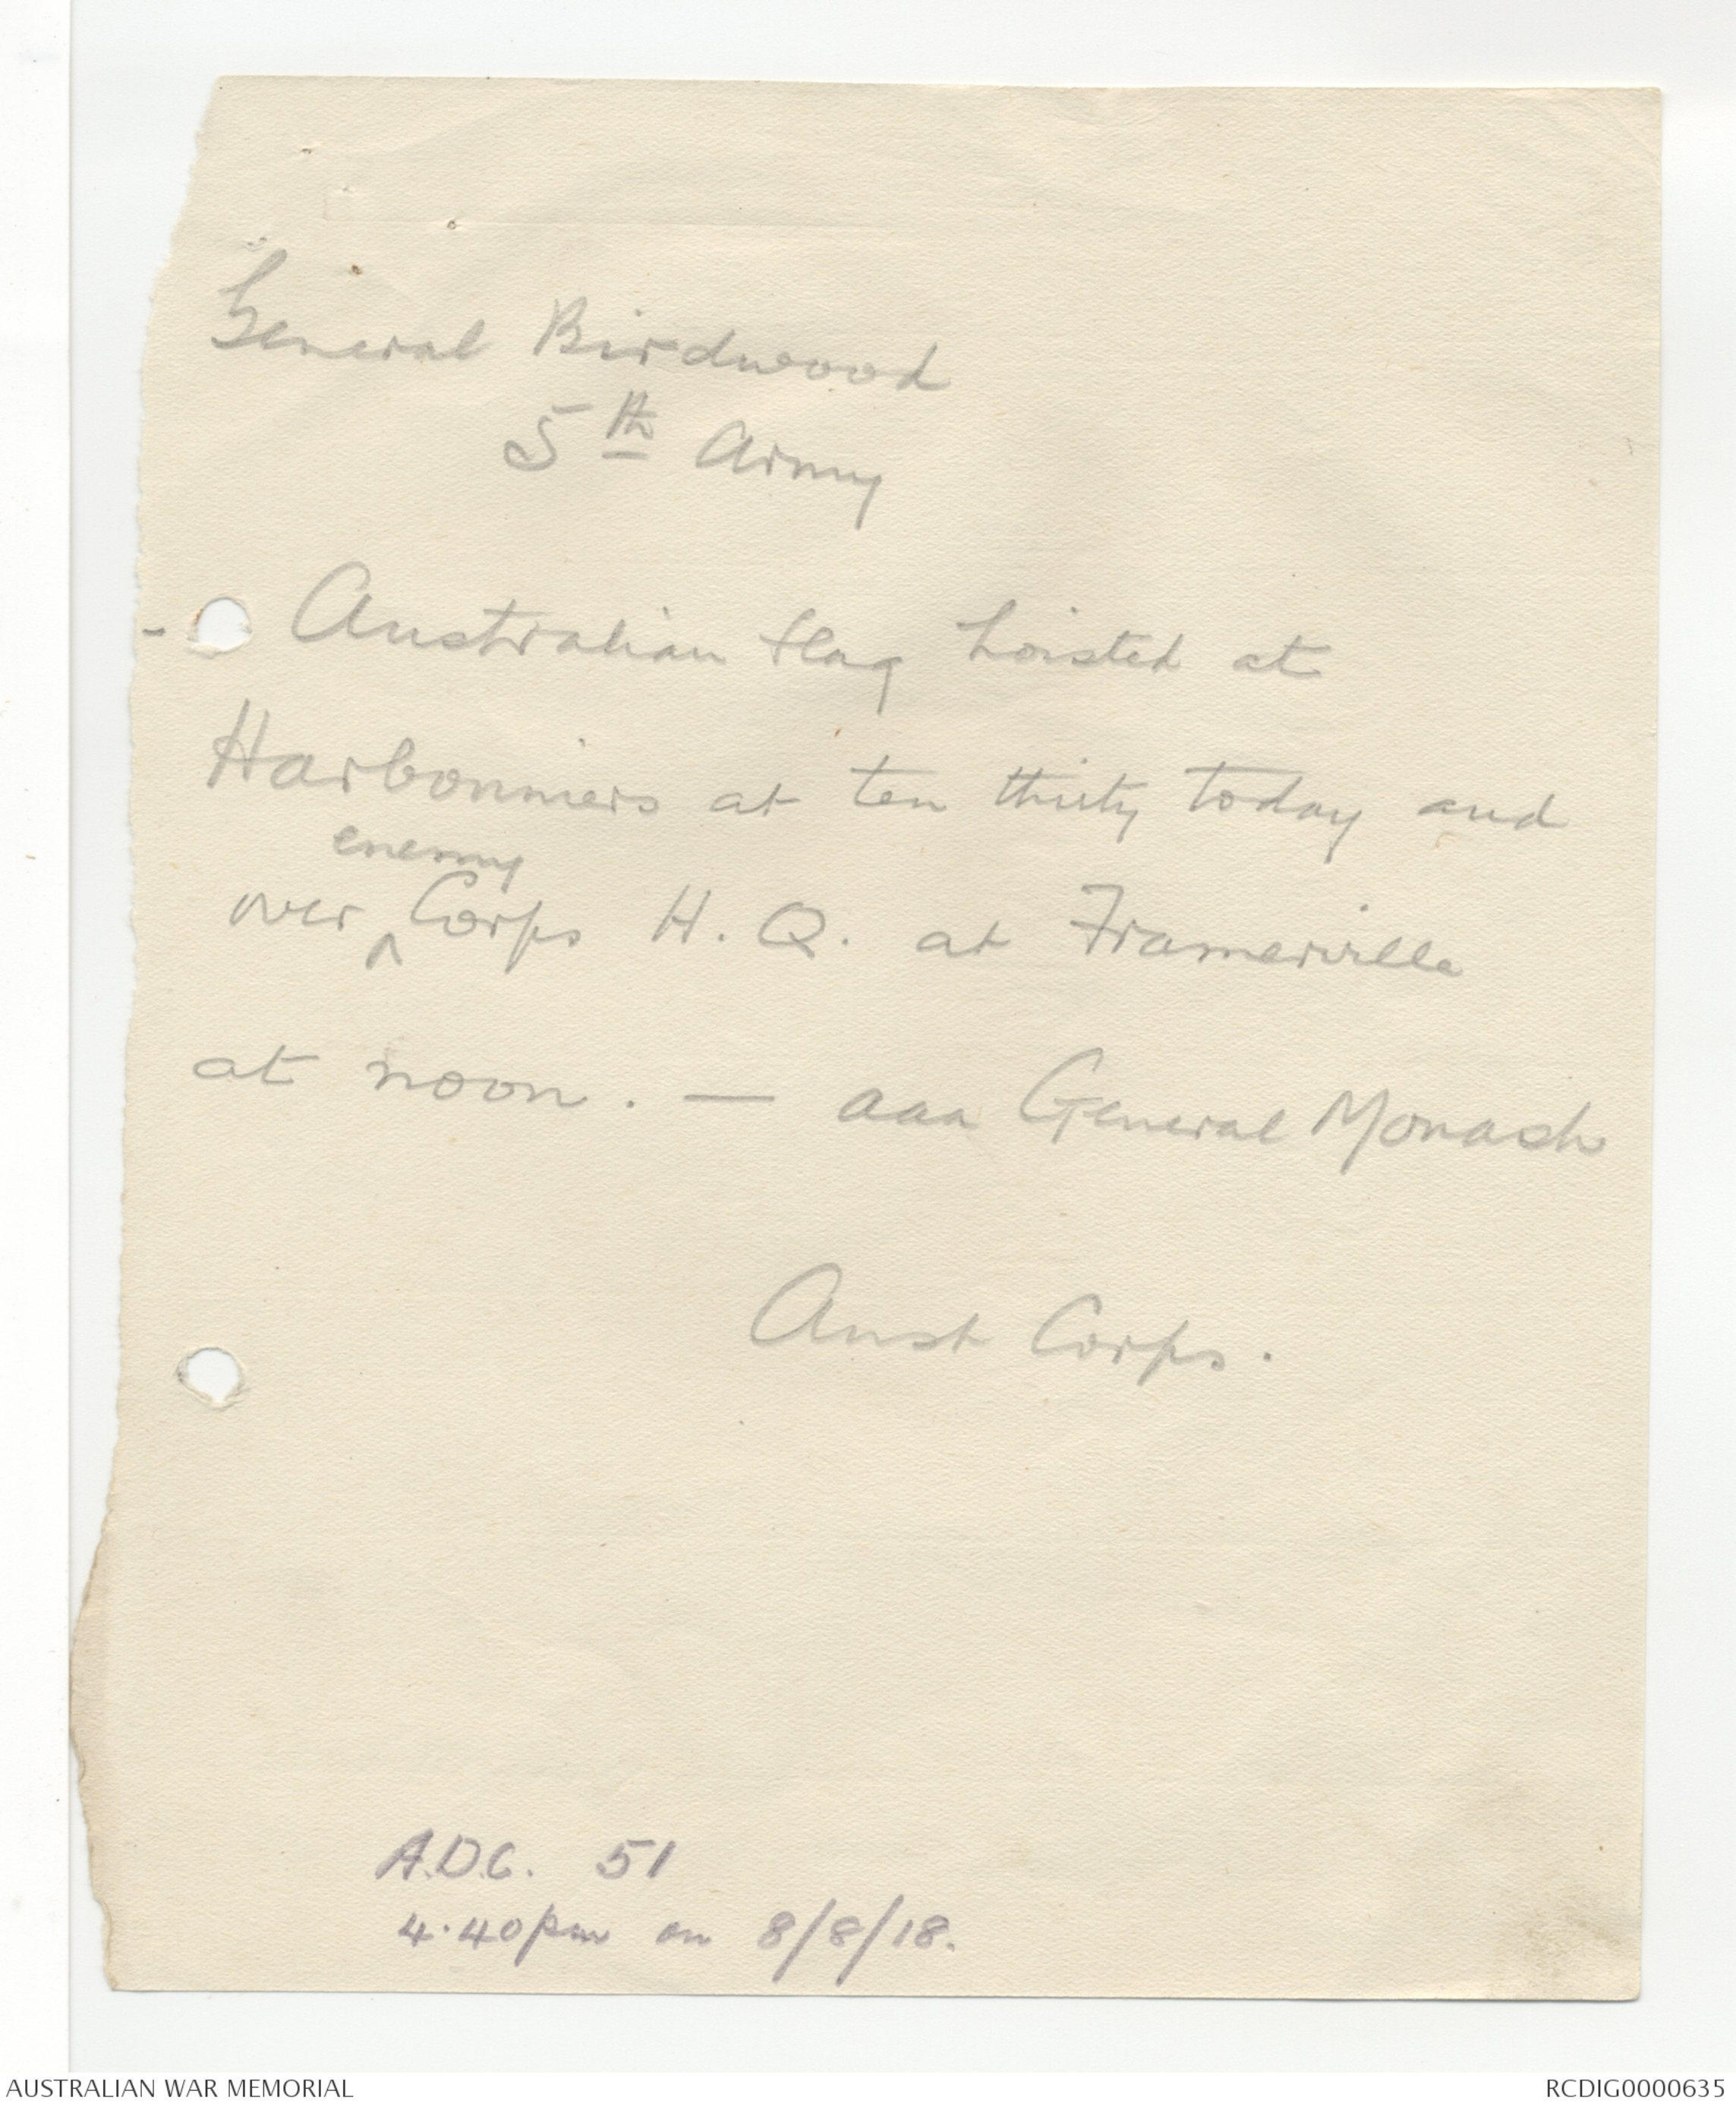 General Birdwood
5th Army
- Australian flag hoisted at
Harbonniers at ten thirty today and
enemy
over ^ Corps H. Q. at Framerville
at noon. — aaa General Monash
Aust Corps.
A.D.C. 51
4.40pm on 8/8/18.
AUSTRALIAN WAR MEMORIAL
RCDIG0000635